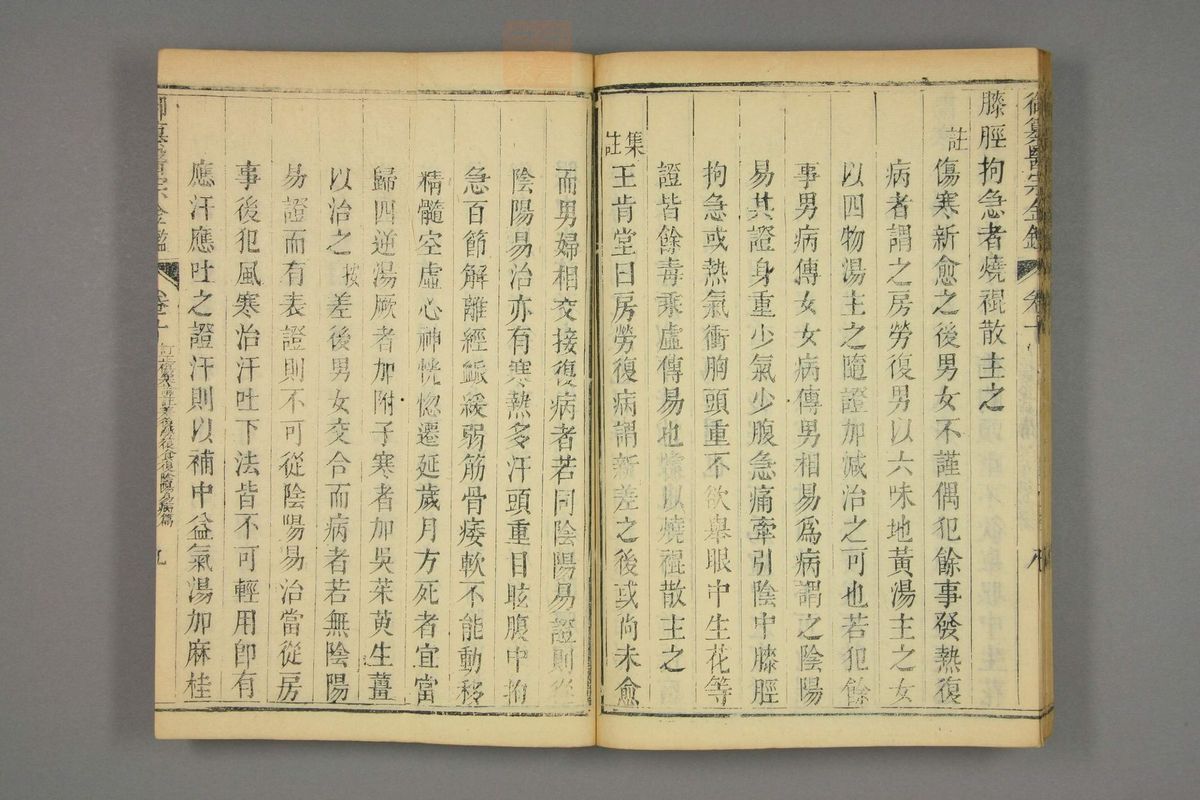 御纂醫宗金鑑 卷十 八
膝脛拘急者燒裩散主之
註傷寒新愈之後男女不謹偶犯餘事發熱復
病者謂之房勞復男以六味地黃湯主之女
以四物湯主之隨證加減治之可也若犯餘
事男病傳女女病傳男相易爲病謂之陰陽
易其證身重少氣少腹急痛牽引陰中膝脛
拘急或熱氣衝胸頭重不欲舉眼中生花等
證皆餘毒乘虛傳易也當以燒裩散主之
集註王肯堂曰房勞復病謂新差之後或尚未愈
而男婦相交接復病者若同陰陽易證則從
陰陽易治亦有寒熱多汗頭重目眩腹中拘
急百節解離經脈緩弱筋骨痿軟不能動移
精髓空虛心神恍惚遷延歲月方死者宜當
歸四逆湯厥者加附子寒者加吳茱萸生薑
以治之按差後男女交合而病者若無陰陽
易證而有表證則不可從陰陽易治當從房
事後犯風寒治汗吐下法皆不可輕用卽有
應汗應吐之證汗則以補中益氣湯加麻桂
御纂醫宗金鑑 卷十 九